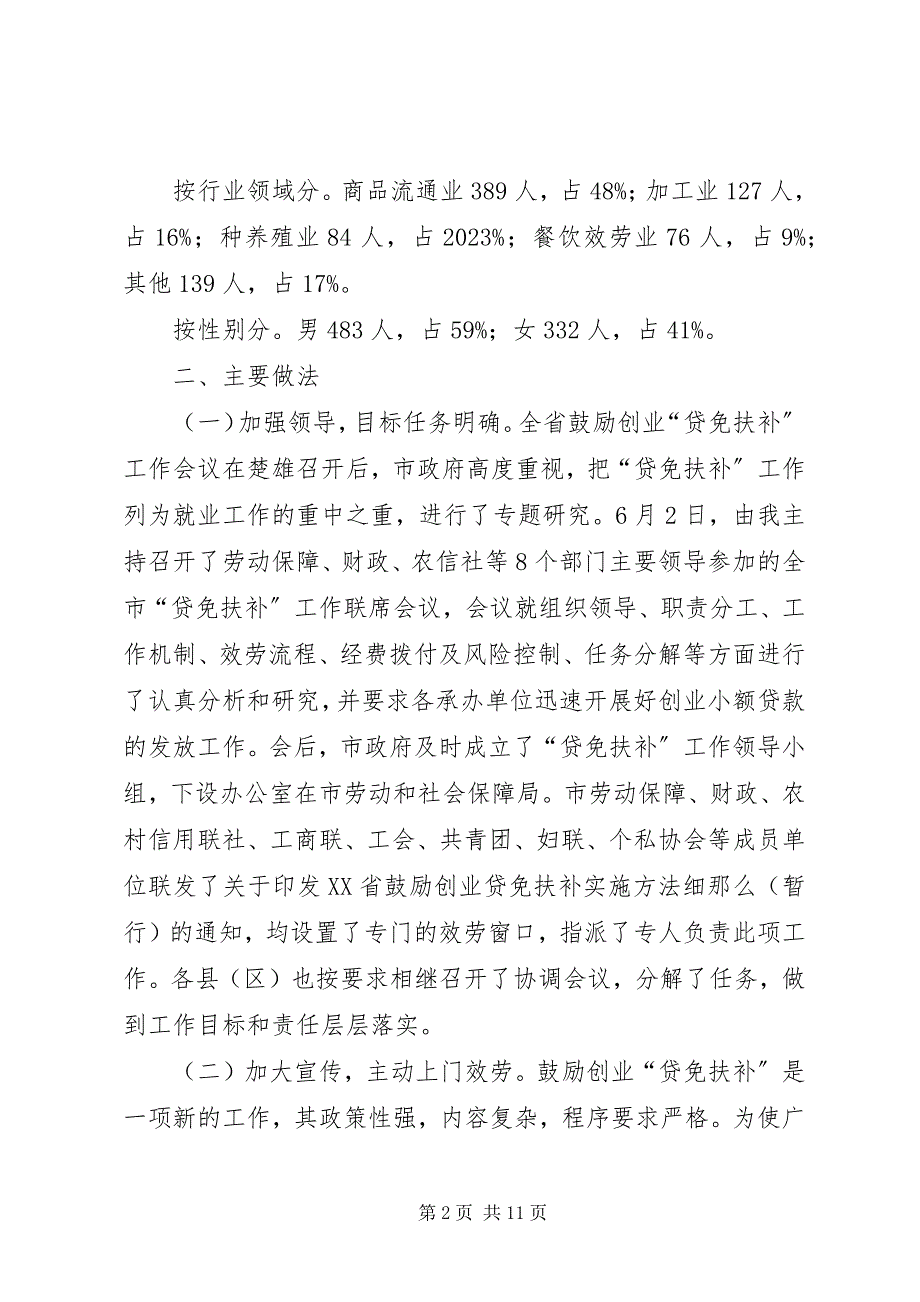 按行业领域分。商品流通业 389 人，占 48%；加工业 127 人，
占 16%；种养殖业 84 人，占 2023%；餐饮效劳业 76 人，占 9%；
其他 139 人，占 17%。
按性别分。男 483 人，占 59%；女 332 人，占 41%。
二、主要做法
（一）加强领导，目标任务明确。全省鼓励创业“贷免扶补〞
工作会议在楚雄召开后，市政府高度重视，把“贷免扶补〞工作
列为就业工作的重中之重，进行了专题研究。6 月 2 日，由我主
持召开了劳动保障、财政、农信社等 8 个部门主要领导参加的全
市“贷免扶补〞工作联席会议，会议就组织领导、职责分工、工
作机制、效劳流程、经费拨付及风险控制、任务分解等方面进行
了认真分析和研究，并要求各承办单位迅速开展好创业小额贷款
的发放工作。会后，市政府及时成立了“贷免扶补〞工作领导小
组，下设办公室在市劳动和社会保障局。市劳动保障、财政、农
村信用联社、工商联、工会、共青团、妇联、个私协会等成员单
位联发了关于印发 XX 省鼓励创业贷免扶补实施方法细那么（暂
行）的通知，均设置了专门的效劳窗口，指派了专人负责此项工
作。各县（区）也按要求相继召开了协调会议，分解了任务，做
到工作目标和责任层层落实。
（二）加大宣传，主动上门效劳。鼓励创业“贷免扶补〞是
一项新的工作，其政策性强，内容复杂，程序要求严格。为使广
第 2 页 共 11 页